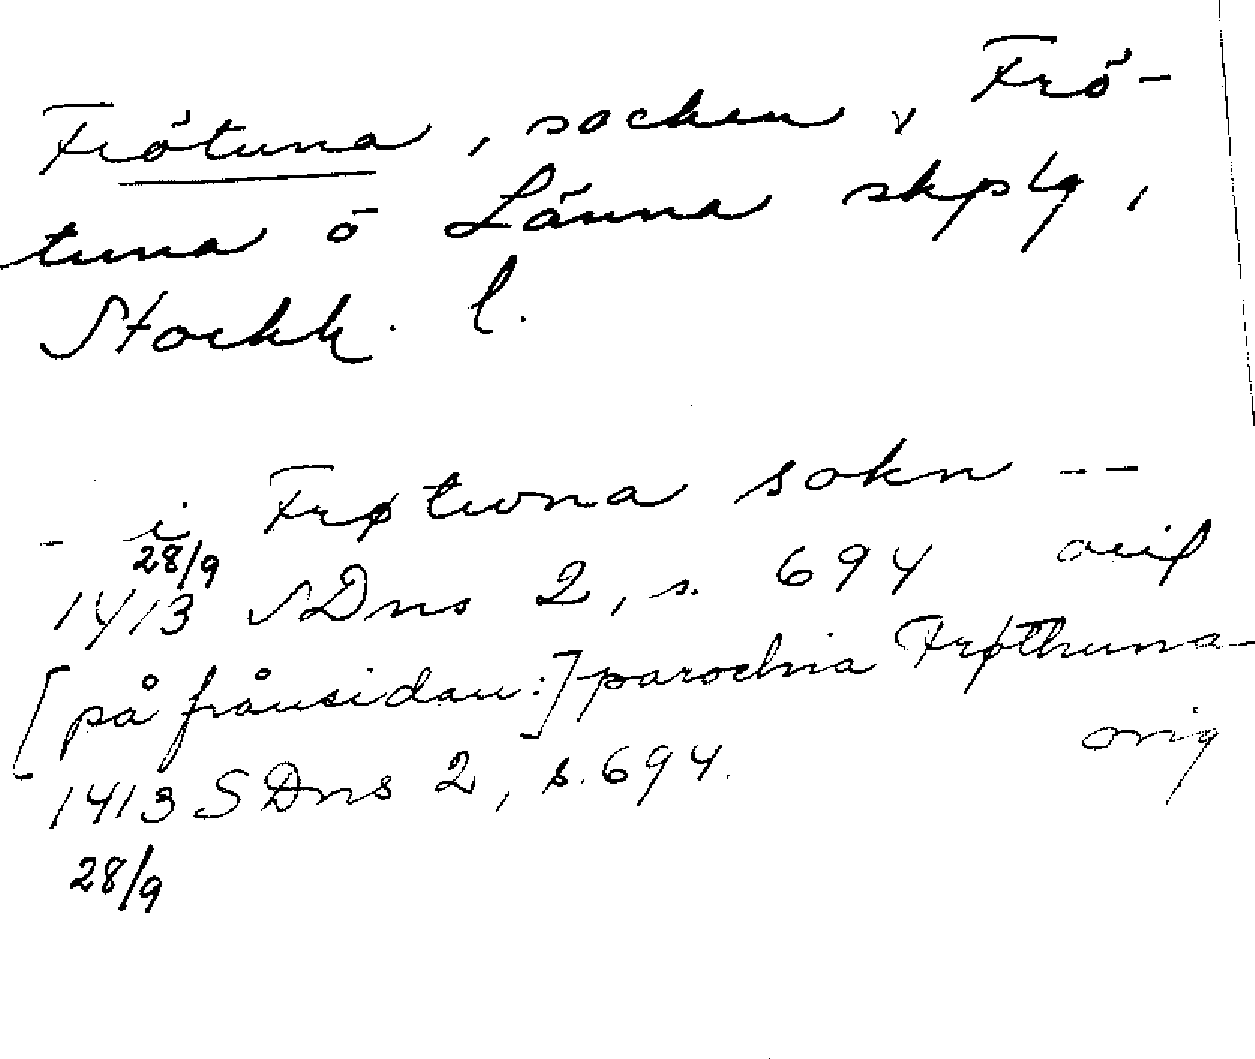 Frötuna, socken, Frö-
tuna o Länna skplg,
Stockh. l.
- i Frøtwna sokn --
28/9
1413 SDns 2, s. 694 orig
[på frånsidan:] parochia Frøthuna-
1413 SDns 2, s. 694. orig
28/9